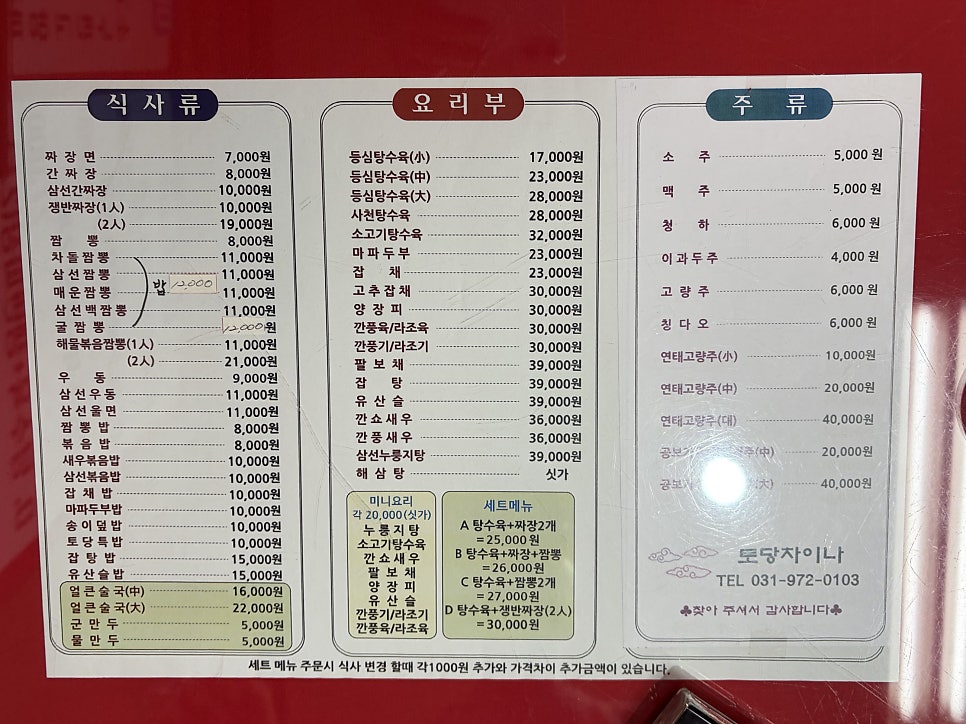 식사류
짜장면 7,000원
간짜장 8,000원
삼선간짜장 10,000원
쟁반짜장(1人) 10,000원
(2人) 19,000원
짬뽕 8,000원
차돌짬뽕 11,000원
삼선짬뽕 11,000원
밥 12,000
매운짬뽕 11,000원
삼선백짬뽕 11,000원
굴짬뽕 12,000원
해물볶음짬뽕(1人) 11,000원
(2人) 21,000원
우동 9,000원
삼선우동 11,000원
삼선울면 11,000원
짬뽕밥 8,000원
볶음밥 8,000원
새우볶음밥 10,000원
삼선볶음밥 10,000원
잡채밥 10,000원
마파두부밥 10,000원
송이덮밥 10,000원
토당특밥 10,000원
잡탕밥 15,000원
유산슬밥 15,000원
얼큰술국(中) 16,000원
얼큰술국(大) 22,000원
군만두 5,000원
물만두 5,000원
요리부
등심탕수육(小) 17,000원
등심탕수육(中) 23,000원
등심탕수육(大) 28,000원
사천탕수육 28,000원
소고기탕수육 32,000원
마파두부 23,000원
잡채 23,000원
고추잡채 30,000원
양장피 30,000원
깐풍육/라조육 30,000원
깐풍기/라조기 30,000원
팔보채 39,000원
잡탕 39,000원
유산슬 39,000원
깐쇼새우 36,000원
깐풍새우 36,000원
삼선누룽지탕 39,000원
해삼탕 싯가
미니요리
각 20,000(싯가)
누룽지탕
소고기탕수육
깐쇼새우
팔보채
양장피
유산슬
깐풍기/라조기
깐풍육/라조육
세트메뉴
A 탕수육+짜장2개
=25,000원
B 탕수육+짜장+짬뽕
=26,000원
C 탕수육+짬뽕2개
=27,000원
D 탕수육+쟁반짜장(2人)
=30,000원
주류
소주 5,000 원
맥주 5,000 원
청하 6,000 원
이과두주 4,000 원
고량주 6,000 원
칭다오 6,000 원
연태고량주(小) 10,000원
연태고량주(中) 20,000원
연태고량주(대) 40,000원
(中) 20,000원
40,000원
토당차이나
TEL 031-972-0103
♣찾아 주셔서 감사합니다♣
세트 메뉴 주문시 식사 변경 할때 각1000원 추가와 가격차이 추가금액이 있습니다.